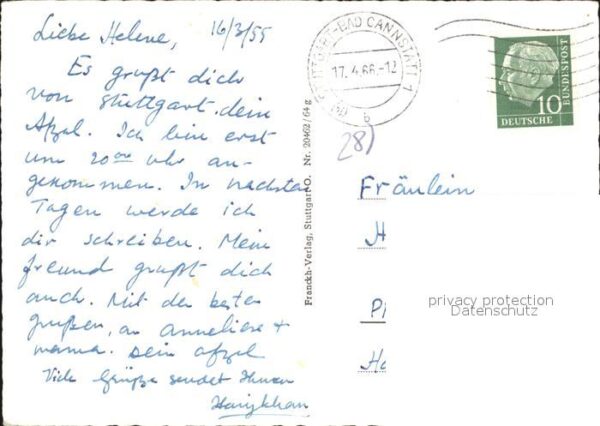 Liebe Helene, 16/3/55
Es grüßt dich
von Stuttgart dein
Afzal. Ich bin erst
um 20 00 Uhr an-
gekommen. In nächsten
Tagen werde ich
dir schreiben. Mein
freund grüßt dich
auch. Mit den besten
grüßen, an Anneliese +
mama. Dein Afzal
Viele Grüße sendet Ihnen
STUTTGART-BAD CANNSTATT 1
17.4.66.-12
b
10
DEUTSCHE
BUNDESPOST
28)
Franckh-Verlag, Stuttgart-O. Nr. 20462/64 g
Fräulein
H
Pi
Ha
privacy protection
Datenschutz